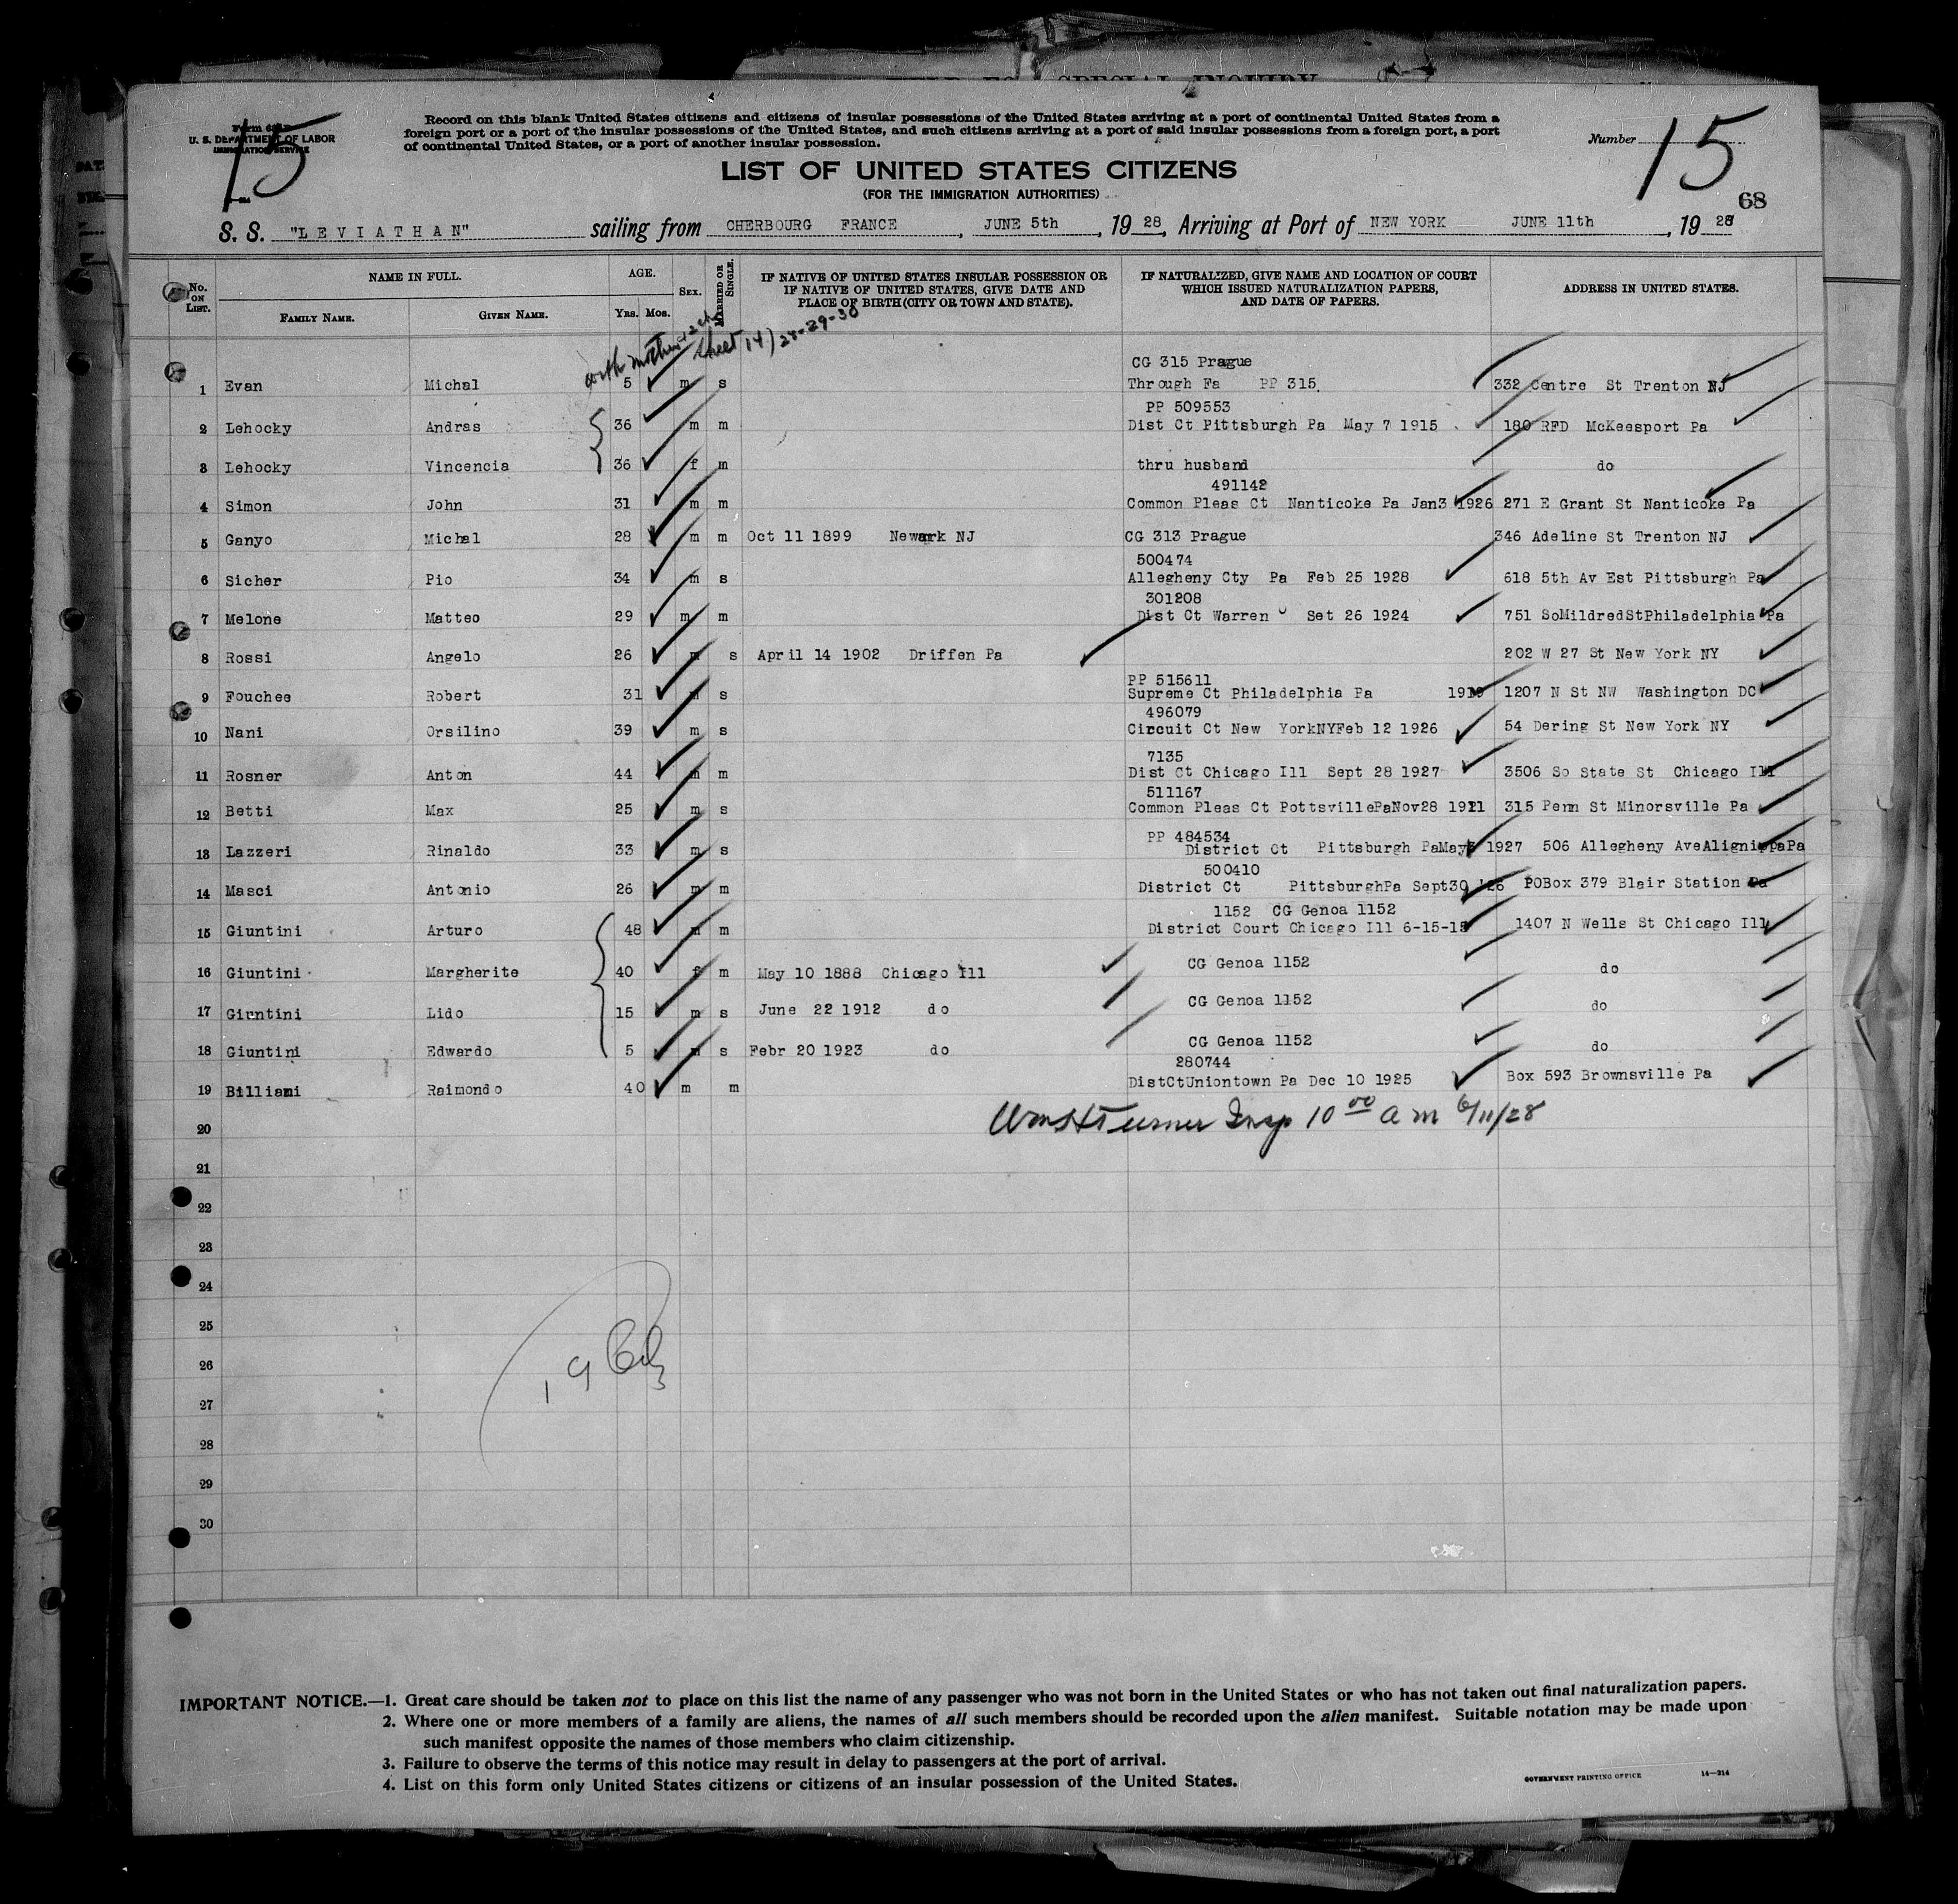 SPECIAL INQUIRY
15
U. S. DEPARTMENT OF LABOR
IMMIGRATION SERVICE
Record on this blank United States citizens and citizens of insular possessions of the United States arriving at a port of continental United States from a
foreign port or a port of the insular possessions of the United States, and such citizens arriving at a port of said insular possessions from a foreign port, a port
of continental United States, or a port of another insular possession.
Number 15
68
LIST OF UNITED STATES CITIZENS
(FOR THE IMMIGRATION AUTHORITIES)
S. S. "LEVIATHAN" sailing from CHERBOURG FRANCE, JUNE 5th, 19 28, Arriving at Port of NEW YORK JUNE 11th, 19 28
No. ON LIST. NAME IN FULL. AGE. SEX. MARRIED OR SINGLE. IF NATIVE OF UNITED STATES INSULAR POSSESSION OR IF NATIVE OF UNITED STATES, GIVE DATE AND PLACE OF BIRTH (CITY OR TOWN AND STATE). IF NATURALIZED, GIVE NAME AND LOCATION OF COURT WHICH ISSUED NATURALIZATION PAPERS, AND DATE OF PAPERS. ADDRESS IN UNITED STATES.
FAMILY NAME. GIVEN NAME. Yrs. Mos.
with mother + 2 ch sheet 14) 28-29-30
CG 315 Prague
1 Evan Michal 5 m s Through Fa PP 315. 332 Centre St Trenton NJ
PP 509553
2 Lehocky Andras 36 m m Dist Ct Pittsburgh Pa May 7 1915 180 RFD McKeesport Pa
3 Lehocky Vincencia 36 f m thru husband do
491142
4 Simon John 31 m m Common Pleas Ct Nanticoke Pa Jan3 1926 271 E Grant St Nanticoke Pa
5 Ganyo Michal 28 m m Oct 11 1899 Newark NJ CG 313 Prague 346 Adeline St Trenton NJ
500474
6 Sicher Pio 34 m s Allegheny Cty Pa Feb 25 1928 618 5th Av Est Pittsburgh Pa
301208
7 Melone Matteo 29 m m Dist Ct Warren O Set 26 1924 751 SoMildredStPhiladelphia Pa
8 Rossi Angelo 26 m s April 14 1902 Driffen Pa 202 W 27 St New York NY
PP 515611
9 Fouchee Robert 31 m s Supreme Ct Philadelphia Pa 1919 1207 N St NW Washington DC
496079
10 Nani Orsilino 39 m s Circuit Ct New YorkNYFeb 12 1926 54 Dering St New York NY
7135
11 Rosner Anton 44 m m Dist Ct Chicago Ill Sept 28 1927 3506 So State St Chicago Ill
511167
12 Betti Max 25 m s Common Pleas Ct PottsvillePaNov28 1921 315 Penn St Minorsville Pa
PP 484534
13 Lazzeri Rinaldo 33 m s District Ct Pittsburgh PaMay3 1927 506 Allegheny AveAlignippaPa
500410
14 Masci Antonio 26 m m District Ct PittsburghPa Sept30 '26 POBox 379 Blair Station Pa
1152 CG Genoa 1152
15 Giuntini Arturo 48 m m District Court Chicago Ill 6-15-15 1407 N Wells St Chicago Ill
16 Giuntini Margherite 40 f m May 10 1888 Chicago Ill CG Genoa 1152 do
17 Girntini Lido 15 m s June 22 1912 do CG Genoa 1152 do
18 Giuntini Edwardo 5 m s Febr 20 1923 do CG Genoa 1152 do
280744
19 Billiani Raimondo 40 m m DistCtUniontown Pa Dec 10 1925 Box 593 Brownsville Pa
20 Wm H Turner Insp 10 00 a m 6/11/28
21
22
23
24
25
26
27
28
29
30
IMPORTANT NOTICE.—1. Great care should be taken not to place on this list the name of any passenger who was not born in the United States or who has not taken out final naturalization papers.
2. Where one or more members of a family are aliens, the names of all such members should be recorded upon the alien manifest. Suitable notation may be made upon
such manifest opposite the names of those members who claim citizenship.
3. Failure to observe the terms of this notice may result in delay to passengers at the port of arrival.
4. List on this form only United States citizens or citizens of an insular possession of the United States.
GOVERNMENT PRINTING OFFICE 14—314